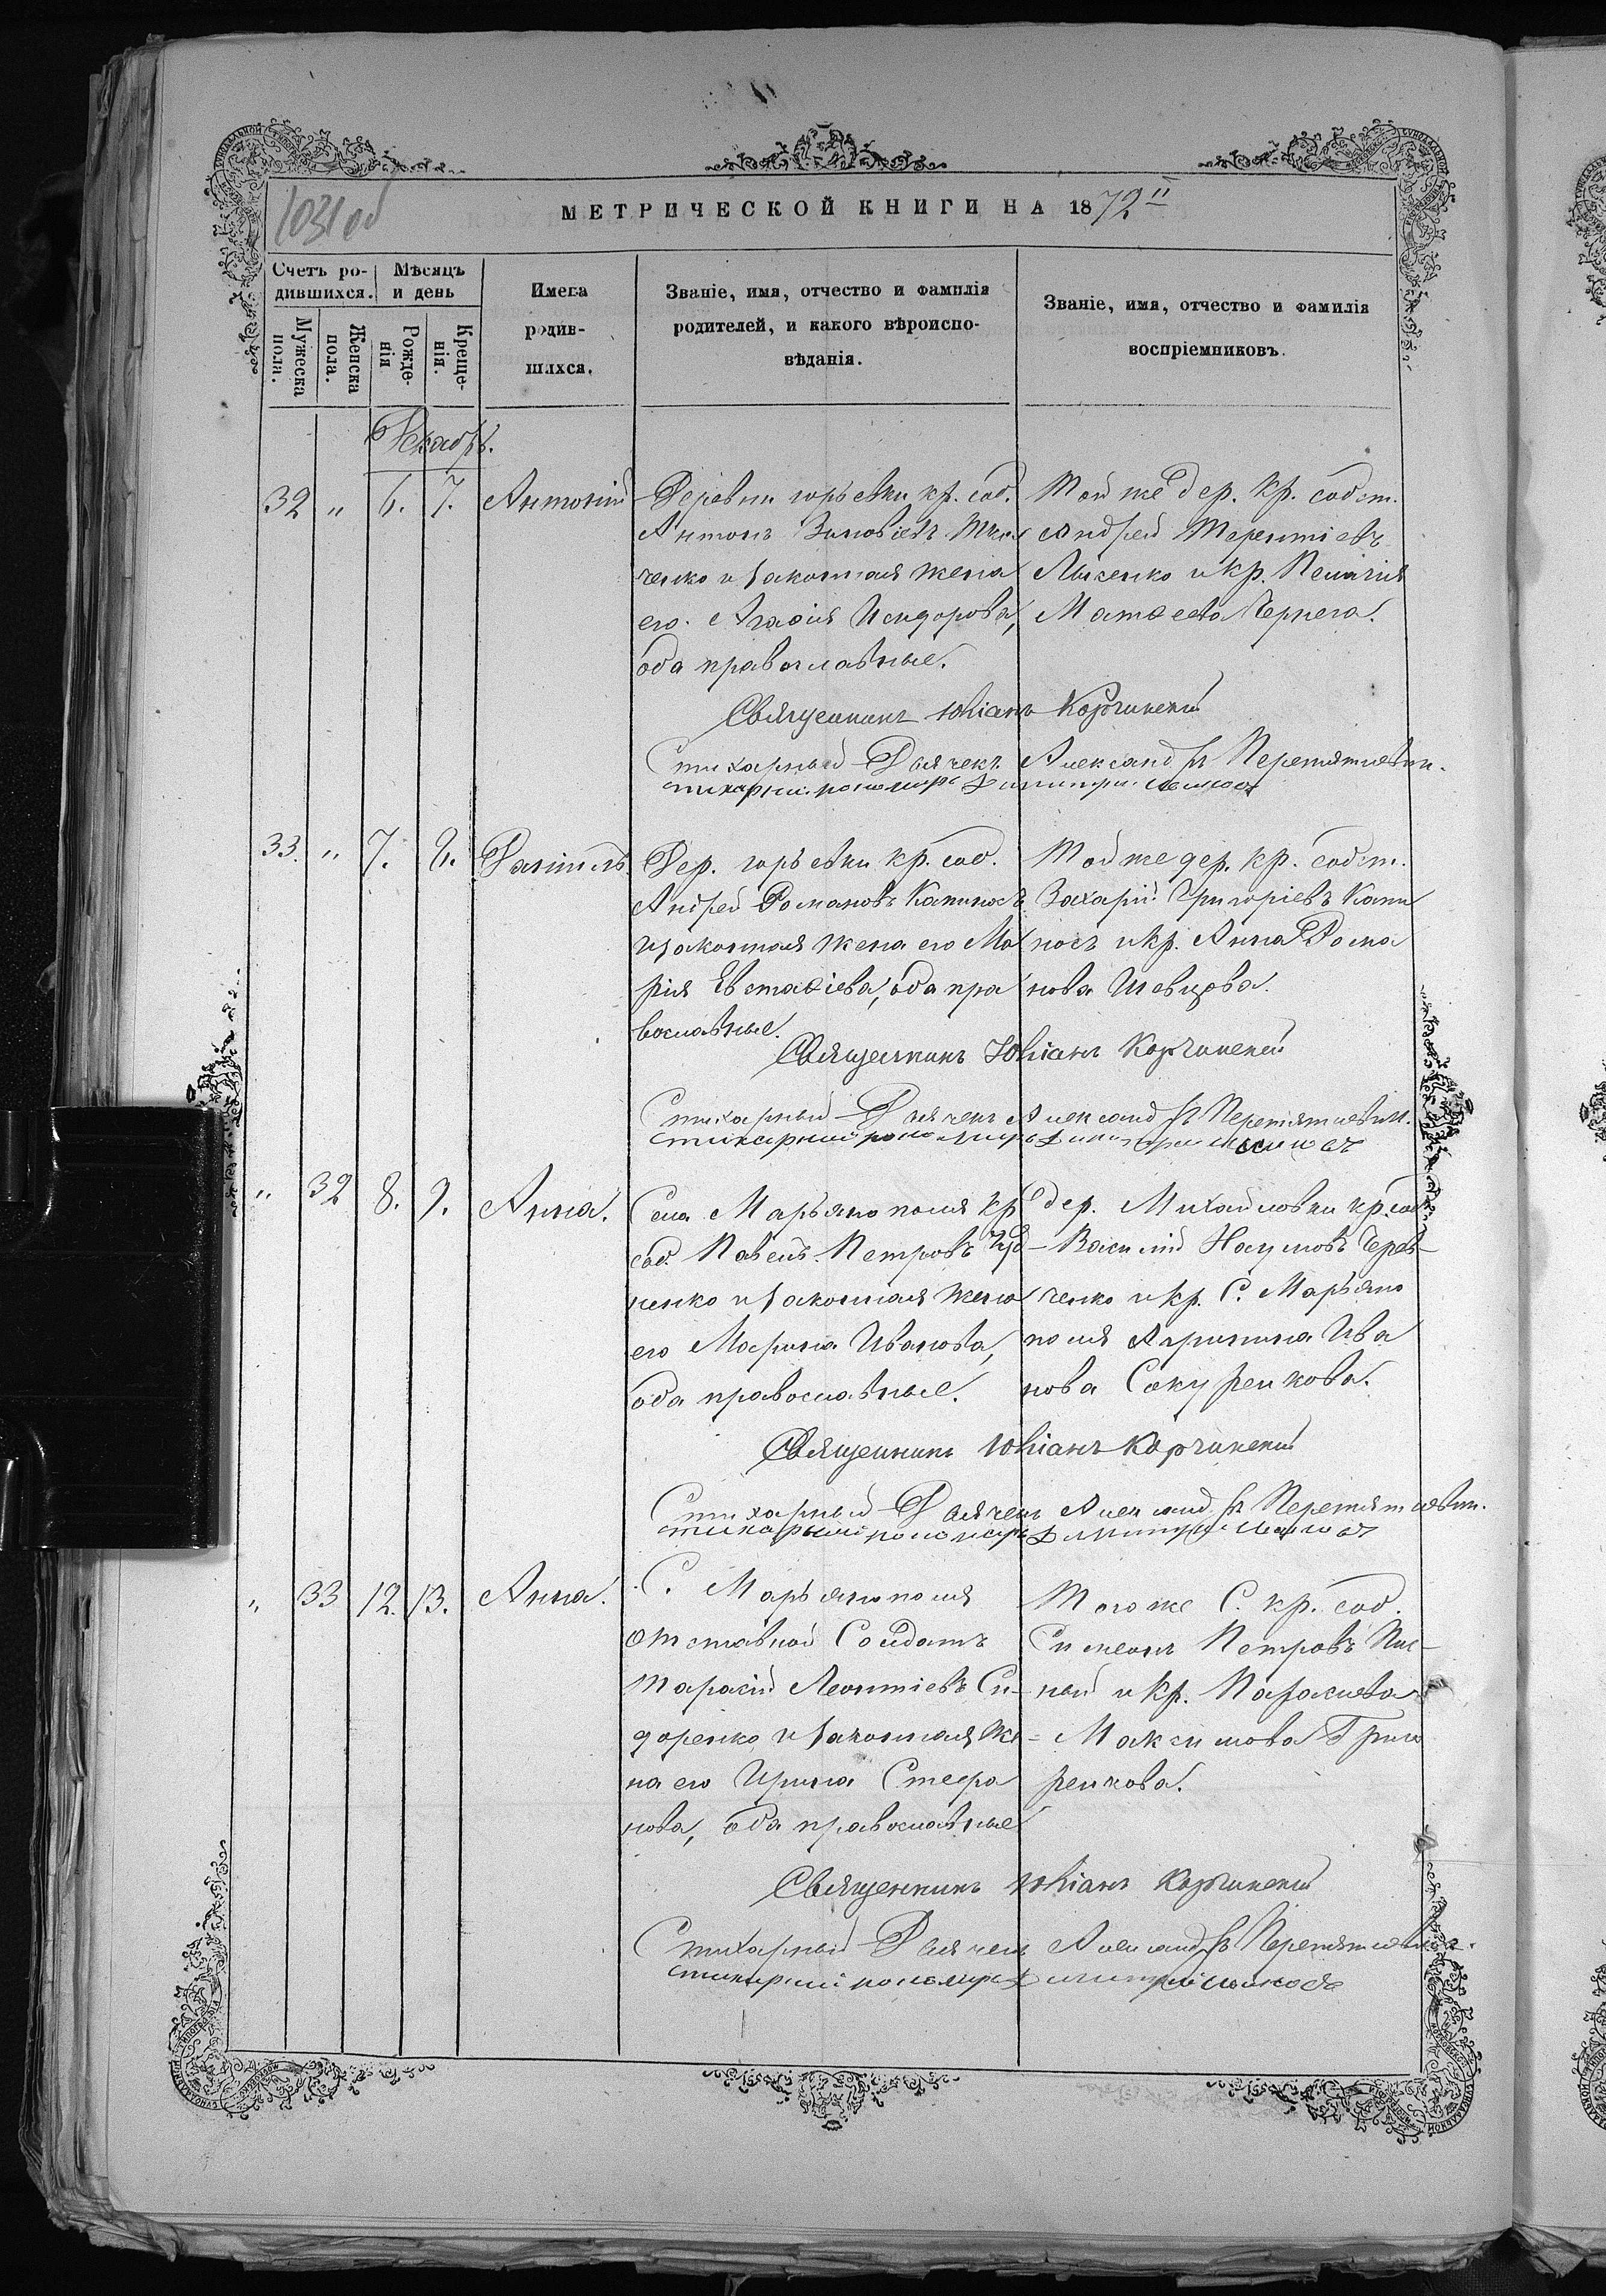 1031 об
МЕТРИЧЕСКОЙ КНИГИ НА 1872
Счетъ ро-
дившихся.
Мѣсяцъ
и день
Мужеска
пола.
Женска
пола.
Рожде-
нія
Креще-
нія.
Имена
родив-
шихся.
Званіе, имя, отчество и фамилія
родителей, и какого вѣроиспо-
вѣданія.
Званіе, имя, отчество и фамилія
воспріемниковъ.
Декабрь.
32 „ 6. 7. Антоній
Деревни горьевки кр. соб.
Антонъ Зиновіевъ
ченко и законная жена
его Агафія Исидорова,
оба православные.
Той же дер. кр. собст.
Андрей Терентіевъ
Лысенко и кр. Пелагія
Матѳеева Чернега.
Священникъ Юліанъ Корчинскій
Стихарный Дьячекъ Александръ
Стихарный пономарь Димитрій
33. „ 7. 8. Даніилъ
Дер. горьевки кр. соб.
Андрей Романовъ Капиносъ
и законная жена его Ма
рія Евстафіева, оба пра
вославные.
Той же дер. кр. собст.
Захарій Григоріевъ Капи
носъ и кр. Анна Рома
нова Шевцова.
Священникъ Юліанъ Корчинскій
Стихарный Дьячекъ Александръ
Стихарный пономарь Димитрій
„ 32 8. 9. Анна.
Села Марьянополя кр
соб. Павелъ Петровъ
ненко и законная жена
его Марина Иванова,
оба православные.
дер. Михайловки кр. соб
Василій Наумовъ Черев-
ченко и кр. С. Марьяно
поля Агрипина Ива
нова Сокуренкова.
Священникъ Юліанъ Корчинскій
Стихарный Дьячекъ Александръ
Стихарный пономарь Димитрій
„ 33 12. 13. Анна.
С. Марьянополя
отставной Солдатъ
Тарасій Леонтіевъ Си-
доренко и законная же-
на его Ирина Стефа
нова, оба православные
Того же С. кр. соб.
Симеонъ Петровъ
ный и кр. Параскева
Максимова Григо
ренкова.
Священникъ Юліанъ Корчинскій
Стихарный Дьячекъ Александръ
Стихарный пономарь Димитрій